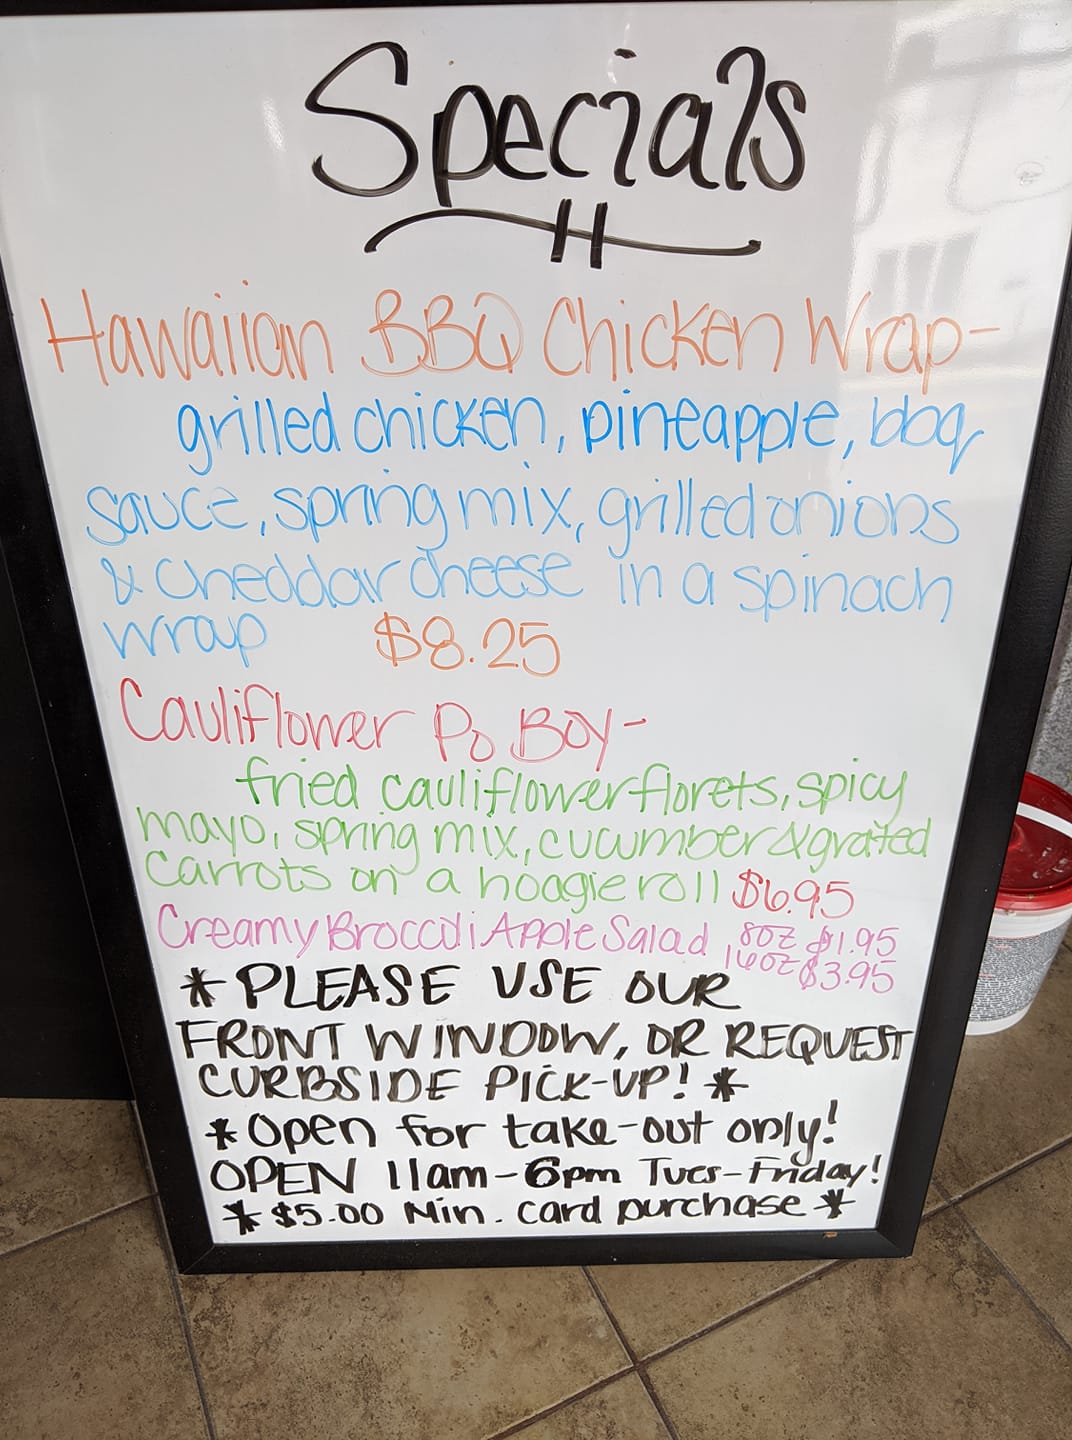 Specials
Hawaiian BBQ Chicken Wrap-
grilled chicken, pineapple, bbq
sauce, spring mix, grilled onions
& cheddar cheese in a spinach
wrap $8.25
Cauliflower Po Boy-
fried cauliflower florets, spicy
mayo, spring mix, cucumber & grated
carrots on a hoagie roll $6.95
Creamy Broccoli Apple Salad 8oz $1.95
16oz $3.95
*PLEASE USE OUR
FRONT WINDOW, OR REQUEST
CURBSIDE PICK-UP! *
*Open for take-out only!
OPEN 11am-6pm Tues-Friday!
*$5.00 Min. Card purchase *